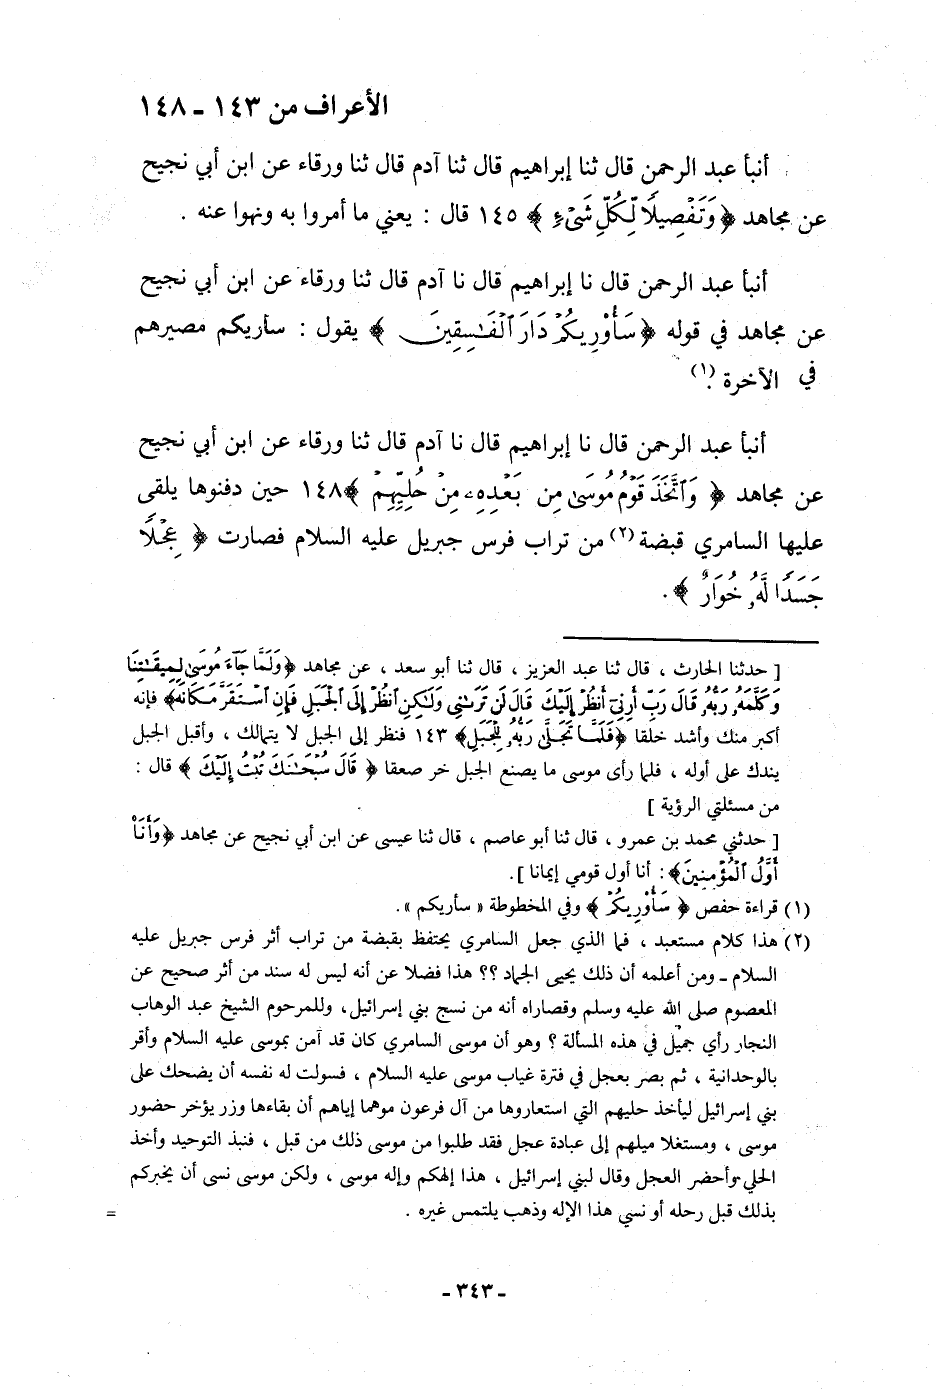 الأعراف من ١٤٣ - ١٤٨
أنبأ عبد الرحمن قال ثنا إبراهيم قال ثنا آدم قال ثنا ورقاء عن ابن أبي نجيح
عن مجاهد ﴿ وَتَفْصِيلًا لِّكُلِّ شَىْءٍ ﴾ ١٤٥ قال : يعني ما أمروا به ونهوا عنه .
أنبأ عبد الرحمن قال نا إبراهيم قال نا آدم قال ثنا ورقاء عن ابن أبي نجيح
عن مجاهد في قوله ﴿ سَأُوْرِيكُمْ دَارَ ٱلْفَـٰسِقِينَ ﴾ يقول : سأريكم مصيرهم
في الآخرة .(١)
أنبأ عبد الرحمن قال نا إبراهيم قال نا آدم قال ثنا ورقاء عن ابن أبي نجيح
عن مجاهد ﴿ وَٱتَّخَذَ قَوْمُ مُوسَىٰ مِن بَعْدِهِۦ مِنْ حُلِيِّهِمْ ﴾ ١٤٨ حين دفنوها يلقى
عليها السامري قبضة (٢) من تراب فرس جبريل عليه السلام فصارت ﴿ عِجْلًا
جَسَدًا لَّهُۥ خُوَارٌ ﴾ .
[ حدثنا الحارث ، قال ثنا عبد العزيز ، قال ثنا أبو سعد ، عن مجاهد ﴿ وَلَمَّا جَآءَ مُوسَىٰ لِمِيقَـٰتِنَا
وَكَلَّمَهُۥ رَبُّهُۥ قَالَ رَبِّ أَرِنِىٓ أَنظُرْ إِلَيْكَ قَالَ لَن تَرَىٰنِى وَلَـٰكِنِ ٱنظُرْ إِلَى ٱلْجَبَلِ فَإِنِ ٱسْتَقَرَّ مَكَانَهُۥ ﴾ فإنه
أكبر منك وأشد خلقا ﴿ فَلَمَّا تَجَلَّىٰ رَبُّهُۥ لِلْجَبَلِ ﴾ ١٤٣ فنظر إلى الجبل لا يتمالك ، وأقبل الجبل
يندك على أوله ، فلما رأى موسى ما يصنع الجبل خر صعقا ﴿ قَالَ سُبْحَـٰنَكَ تُبْتُ إِلَيْكَ ﴾ قال :
من مسئلتي الرؤية ]
[ حدثني محمد بن عمرو ، قال ثنا أبو عاصم ، قال ثنا عيسى عن ابن أبي نجيح عن مجاهد ﴿ وَأَنَا۠
أَوَّلُ ٱلْمُؤْمِنِينَ ﴾ : أنا أول قومي إيمانا ] .
(١) قراءة حفص ﴿ سَأُوْرِيكُمْ ﴾ وفي المخطوطة « سأريكم » .
(٢) هذا كلام مستعبد ، فما الذي جعل السامري يحتفظ بقبضة من تراب أثر فرس جبريل عليه
السلام - ومن أعلمه أن ذلك يحيى الجماد ؟؟ هذا فضلا عن أنه ليس له سند من أثر صحيح عن
المعصوم صلى الله عليه وسلم وقصاراه أنه من نسج بني إسرائيل ، وللمرحوم الشيخ عبد الوهاب
النجار رأي جميل في هذه المسألة ؟ وهو أن موسى السامري كان قد آمن بموسى عليه السلام وأقر
بالوحدانية ، ثم بصر بعجل في فترة غياب موسى عليه السلام ، فسولت له نفسه أن يضحك على
بني إسرائيل ليأخذ حليهم التي استعاروها من آل فرعون موهما إياهم أن بقاءها وزر يؤخر حضور
موسى ، ومستغلا ميلهم إلى عبادة عجل فقد طلبوا من موسى ذلك من قبل ، فنبذ التوحيد وأخذ
الحلي وأحضر العجل وقال لبني إسرائيل ، هذا إلهكم وإله موسى ، ولكن موسى نسى أن يخبركم
بذلك قبل رحله أو نسي هذا الإله وذهب يلتمس غيره . =
- ٣٤٣ -